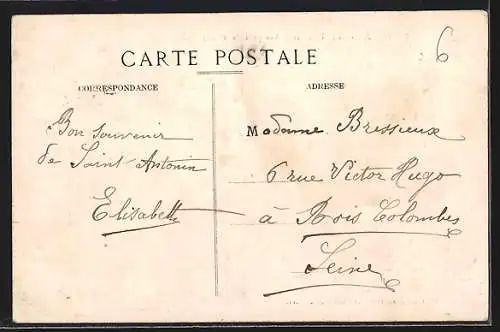 6
CARTE POSTALE
CORRESPONDANCE
ADRESSE
Bon souvenir
de Saint Antonin
Elisabeth
Madame Bressieux
6 rue Victor Hugo
à Bois Colombes
Seine